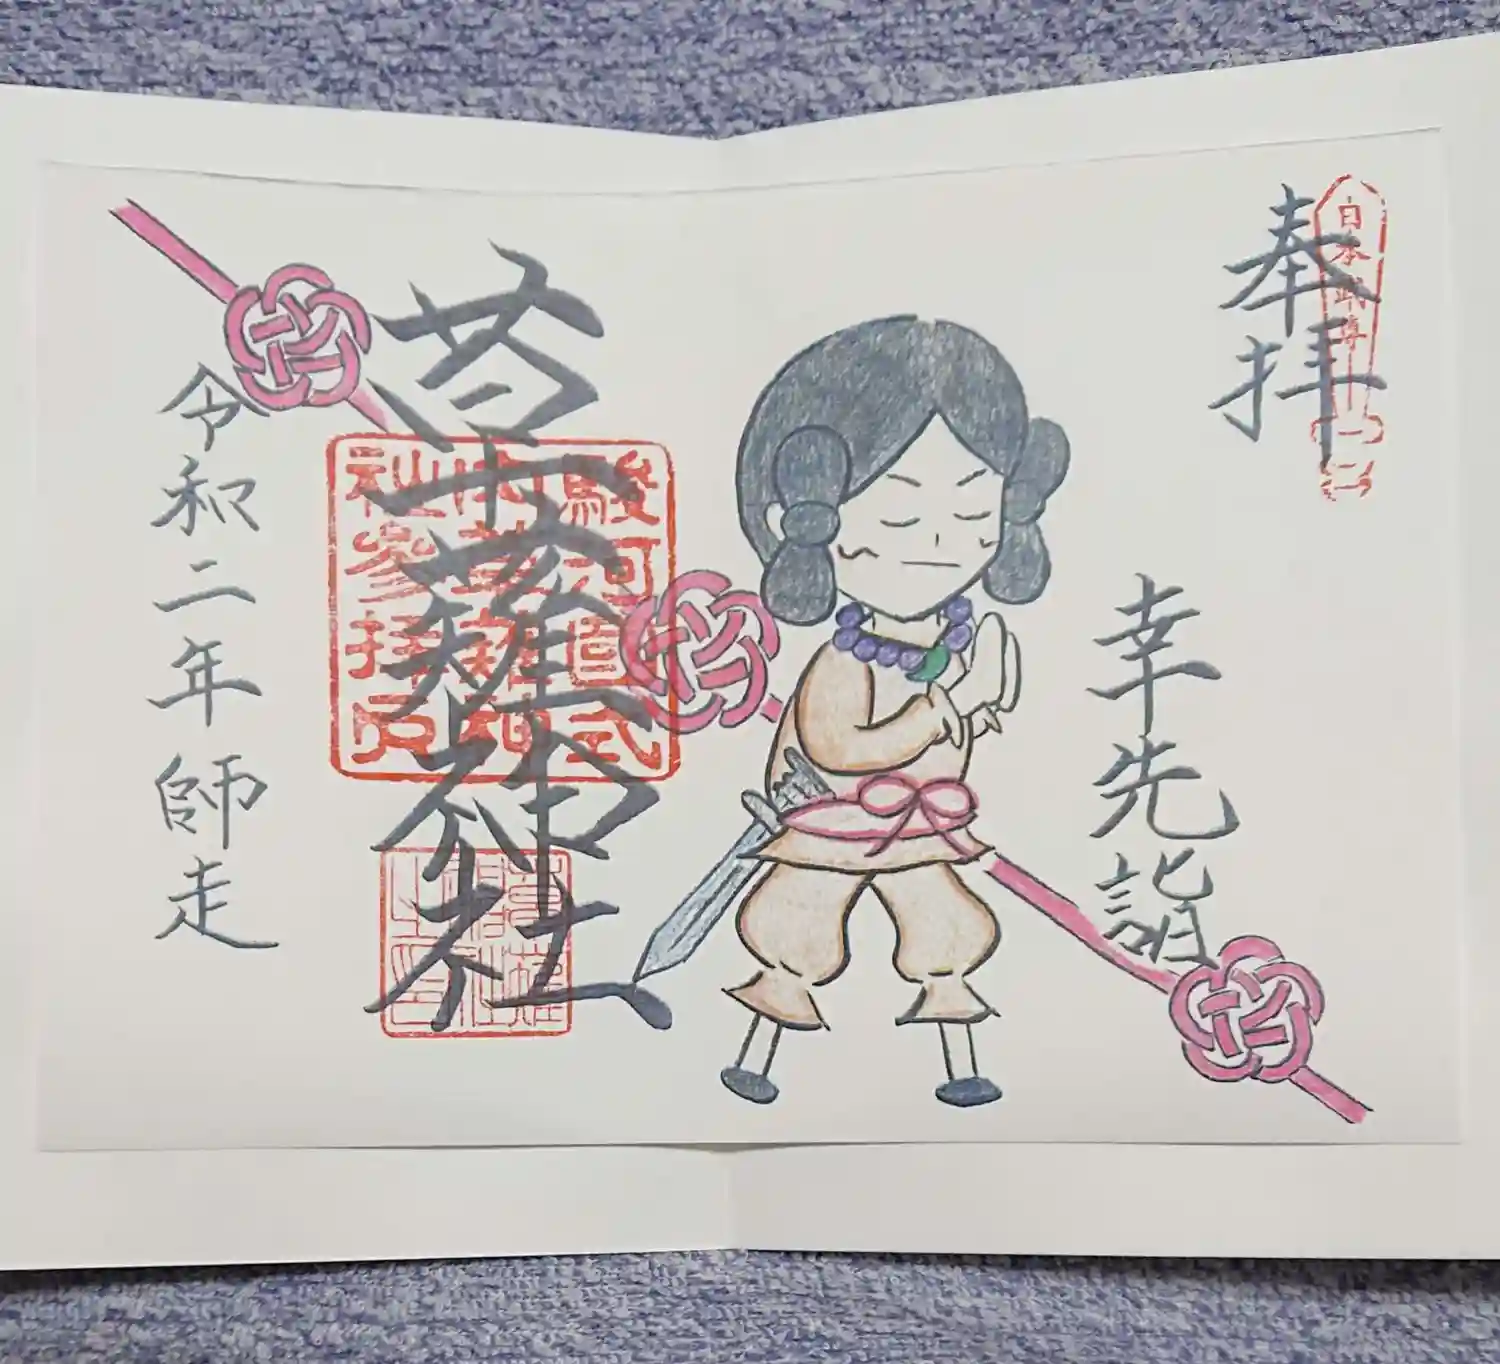 奉拝
日本武尊
幸先詣
草薙神社
駿河國式
内草薙神
社參拝之印
令和二年師走